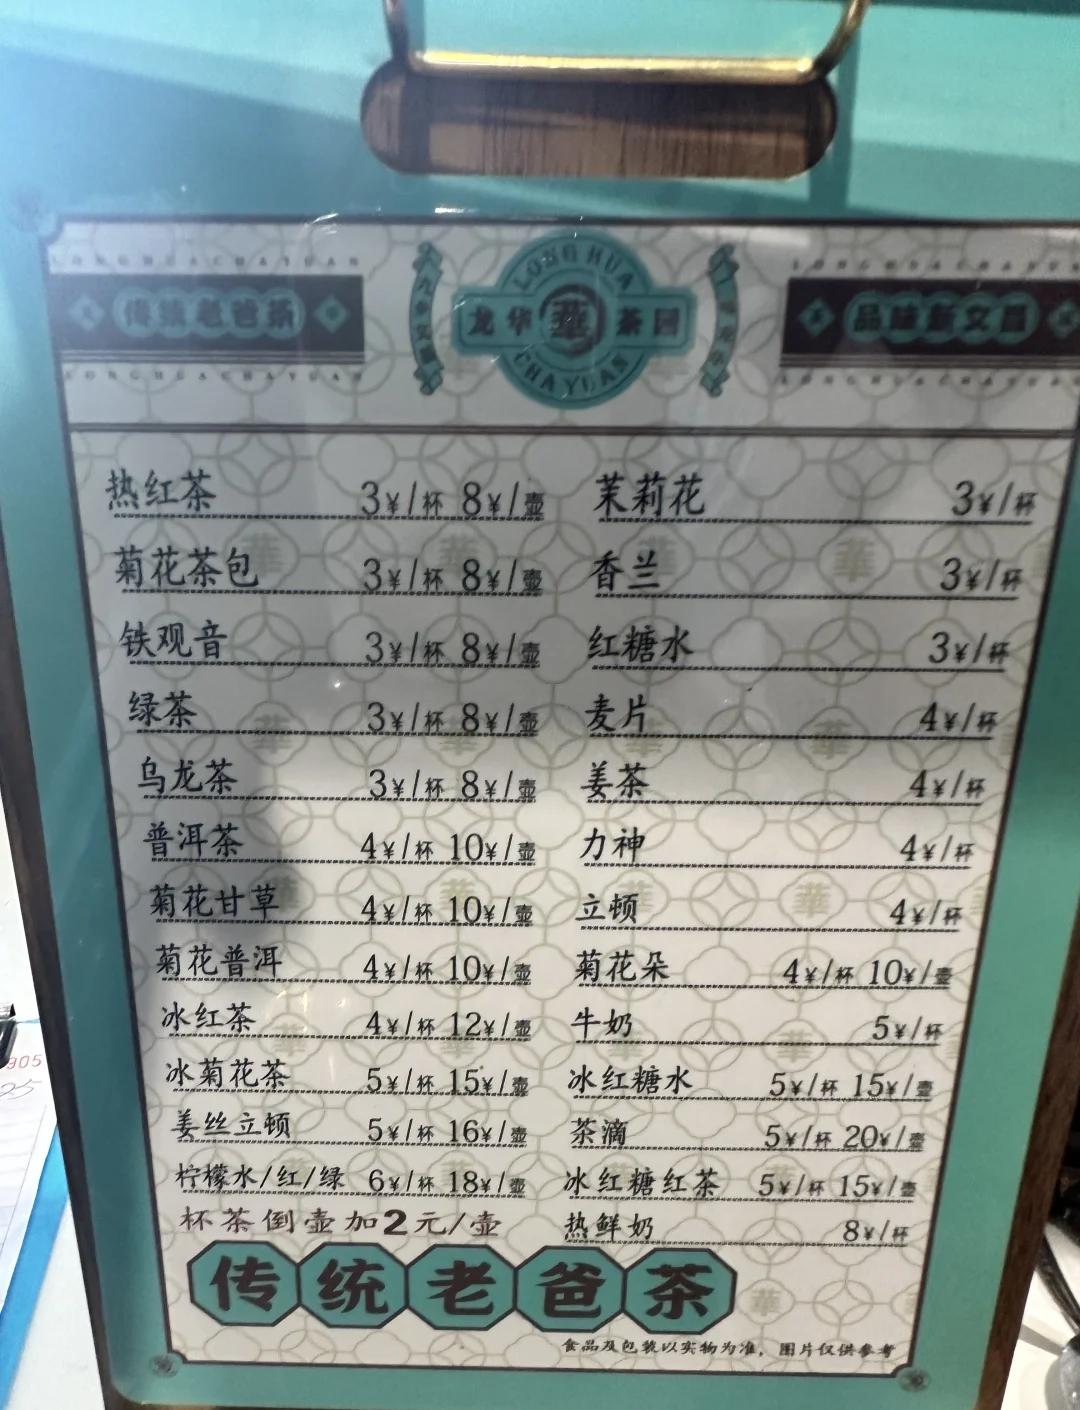 LONGHUACHAYUAN
LONGHUACHAYUAN
传统老爸茶
LONG HUA
龙华 華 茶园
CHA YUAN
品味新文昌
LONGHUACHAYUAN
LONGHUACHAYUAN
热红茶 3¥/杯 8¥/壶
菊花茶包 3¥/杯 8¥/壶
铁观音 3¥/杯 8¥/壶
绿茶 3¥/杯 8¥/壶
乌龙茶 3¥/杯 8¥/壶
普洱茶 4¥/杯 10¥/壶
菊花甘草 4¥/杯 10¥/壶
菊花普洱 4¥/杯 10¥/壶
冰红茶 4¥/杯 12¥/壶
冰菊花茶 5¥/杯 15¥/壶
姜丝立顿 5¥/杯 16¥/壶
柠檬水/红/绿 6¥/杯 18¥/壶
杯茶倒壶加2元/壶
茉莉花 3¥/杯
香兰 3¥/杯
红糖水 3¥/杯
麦片 4¥/杯
姜茶 4¥/杯
力神 4¥/杯
立顿 4¥/杯
菊花朵 4¥/杯 10¥/壶
牛奶 5¥/杯
冰红糖水 5¥/杯 15¥/壶
茶滴 5¥/杯 20¥/壶
冰红糖红茶 5¥/杯 15¥/壶
热鲜奶 8¥/杯
传统老爸茶
食品及包装以实物为准，图片仅供参考
905